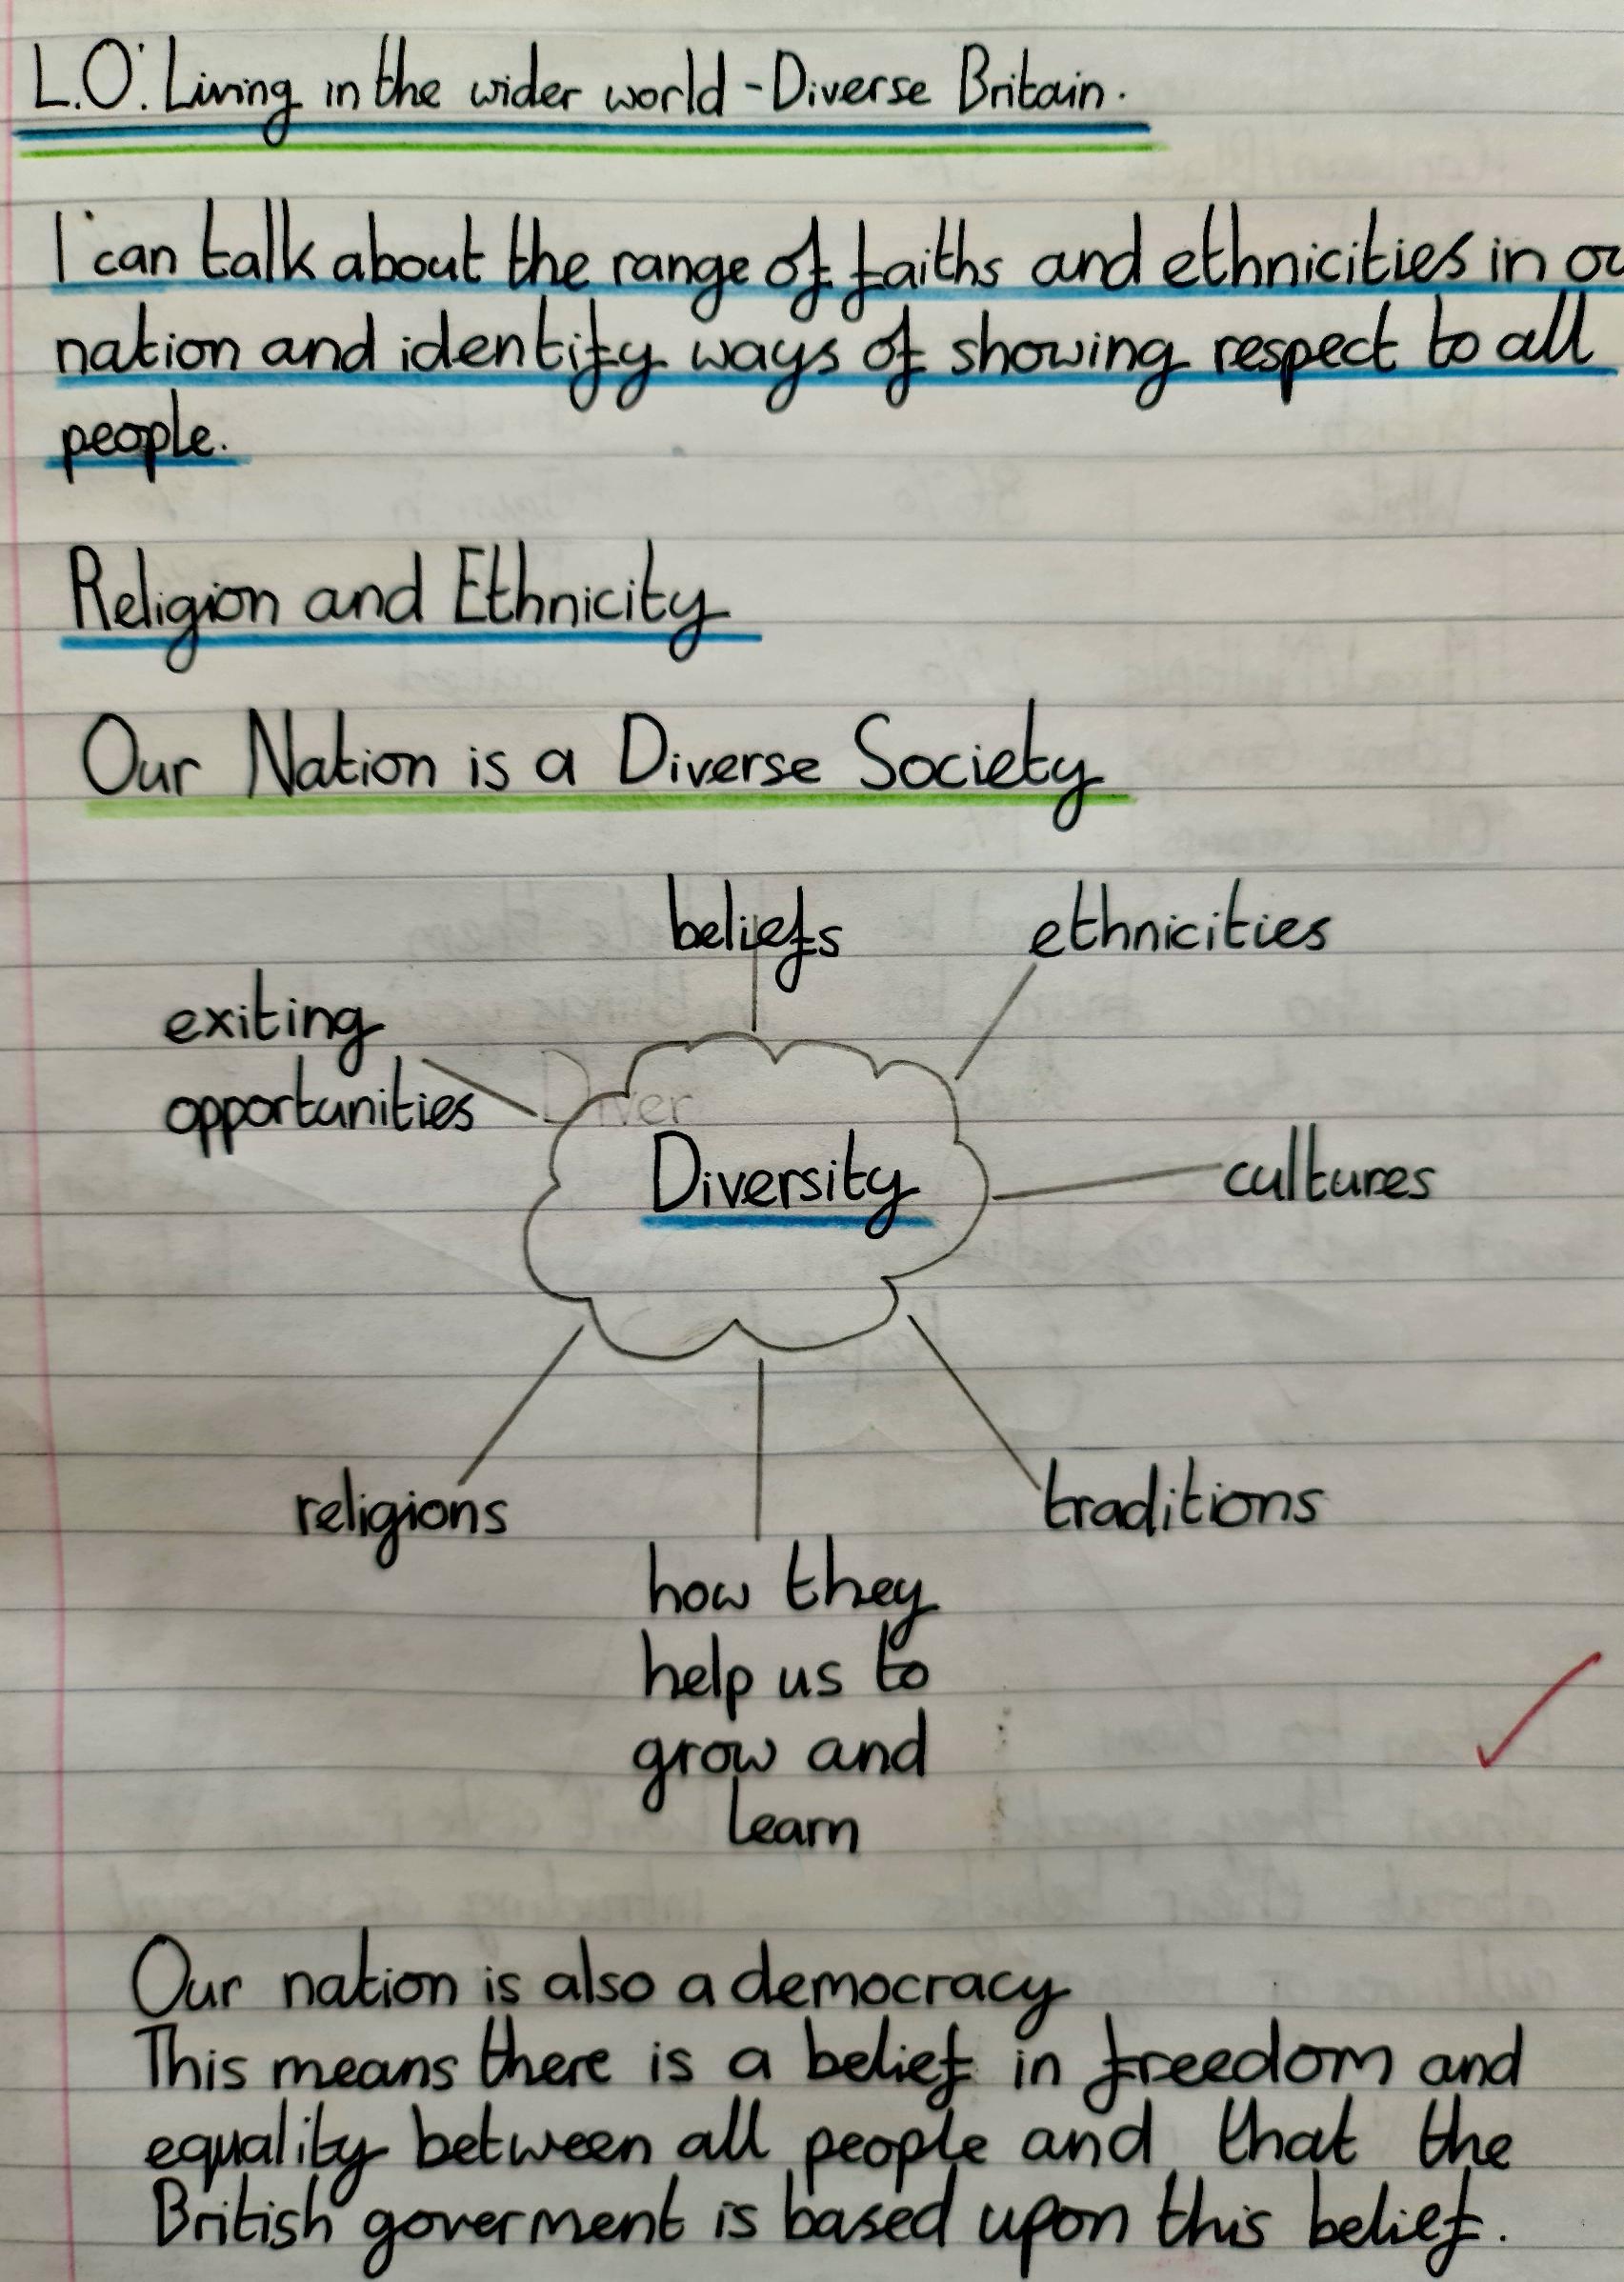 L.O: Living in the wider world - Diverse Britain.
I can talk about the range of faiths and ethnicities in ou
nation and identify ways of showing respect to all
people.
Religion and Ethnicity
Our Nation is a Diverse Society
beliefs
ethnicities
exiting
opportunities
Diver
Diversity
cultures
religions
traditions
how they
help us to
grow and
learn
Our nation is also a democracy
This means there is a belief in freedom and
equality between all people and that the
British goverment is based upon this belief.